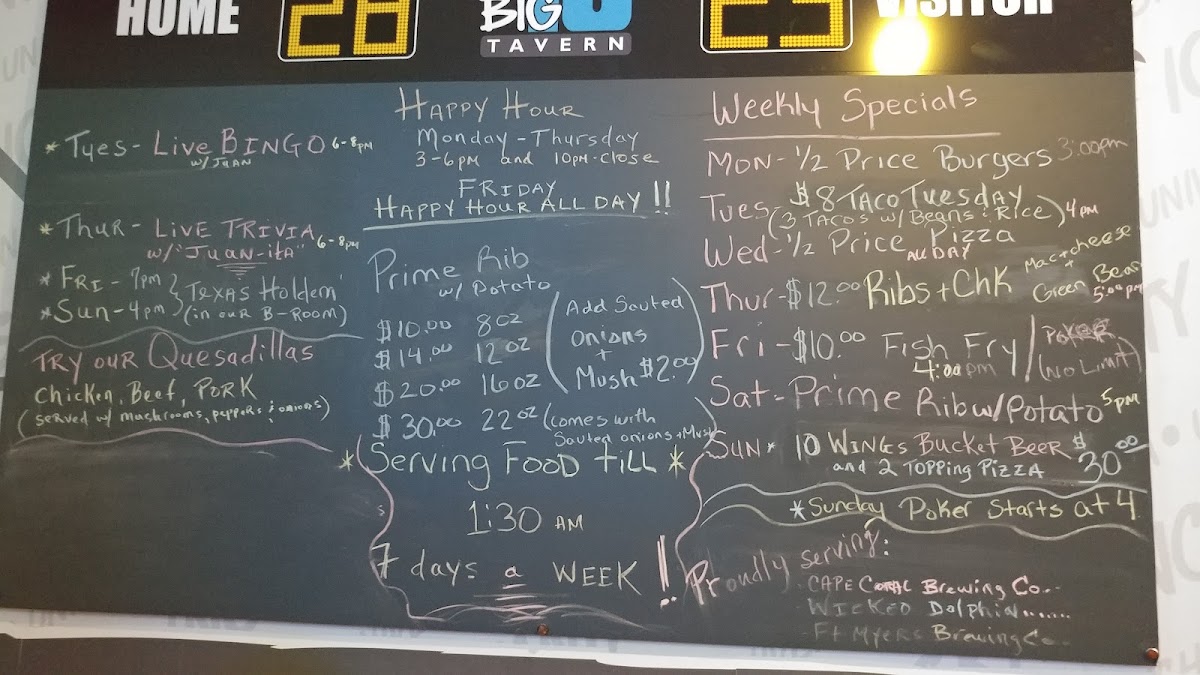 HOME
28
BIG
TAVERN
23
VISITOR
* Tues - Live BINGO 6-8pm
w/ JUAN
* THUR - LIVE TRIVIA 6-8pm
w/ "JUAN-itA"
* FRI - 7pm } Texas Holdem
* Sun - 4pm } (in our B-Room)
TRY our Quesadillas
Chicken, Beef, PORK
(served w/ mushrooms, peppers & onions)
HAPPY HOUR
Monday - Thursday
3-6pm and 10pm-close
FRIDAY
HAPPY HOUR ALL DAY !!
Prime Rib
w/ Potato
$10.00 8oz
$14.00 12oz
$20.00 16oz
$30.00 22oz (comes with
Sauted onions + Mush)
(Add Sauted
Onions
+
Mush $2.00)
* Serving FOOD till *
1:30 AM
7 days a WEEK !!
Weekly Specials
MON - 1/2 Price Burgers 3:00pm
Tues - $8 TACO Tuesday
(3 TACOS w/ Beans & Rice) 4pm
Wed - 1/2 Price Pizza
ALL DAY
Thur - $12.00 Ribs + Chk Mac + cheese
+
Green Bean
5:00pm
Fri - $10.00 Fish Fry / POKER
4:00pm (No Limit)
Sat - Prime Rib w/ Potato 5pm
SUN * 10 WINGS Bucket BEER $30.00
and 2 TOPPING PIZZA
* Sunday Poker Starts at 4
Proudly serving:
- CAPE CORAL Brewing Co..
- WICKED Dolphin......
- Ft Myers Brewing Co..